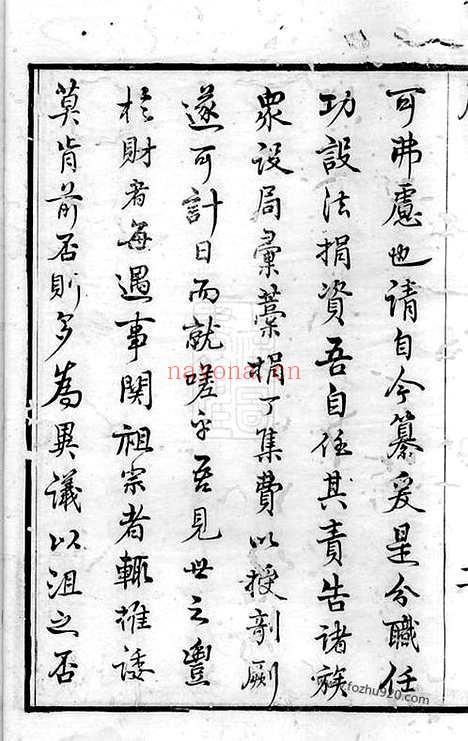 可弗慮也請自今纂爰是分職任
功設法捐資吾自任其責告諸族
衆設局彙藁捐丁集費以授剞劂
遂可計日而就嗟乎吾見世之豐
於財者每遇事関祖宗者輒推諉
莫肯前否則多為異議以沮之否
nayona.cn
cfozhu920.com